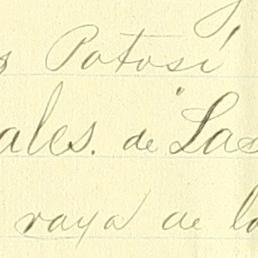 Potosí
ales. de "Las
raya de lo